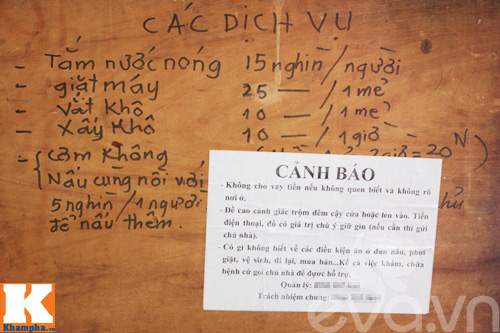 CÁC DỊCH VỤ
- Tắm nước nóng 15 nghìn / người
- giặt máy 25 — / 1 mẻ
- Vắt Khô 10 — / 1 mẻ
- Xấy Khô 10 — / 1 giờ
= 20 N
- cơm không
Nấu cùng nồi với
5 nghìn / 1 người
để nấu thêm.
CẢNH BÁO
- Không cho vay tiền nếu không quen biết và không rõ
nơi ở.
- Đề cao cảnh giác trộm đêm cậy cửa hoặc len vào. Tiền
điện thoại, đồ có giá trị chú ý giữ gìn (nếu cần thì gửi
chủ nhà).
- Có gì không biết về các điều kiện ăn ở đun nấu, phơi
giặt, vệ sinh, đi lại, mua bán...Kể cả việc khám, chữa
bệnh cứ gọi chủ nhà để được hỗ trợ.
Quản lý:
Trách nhiệm chung:
K
Khampha.vn
eva.vn